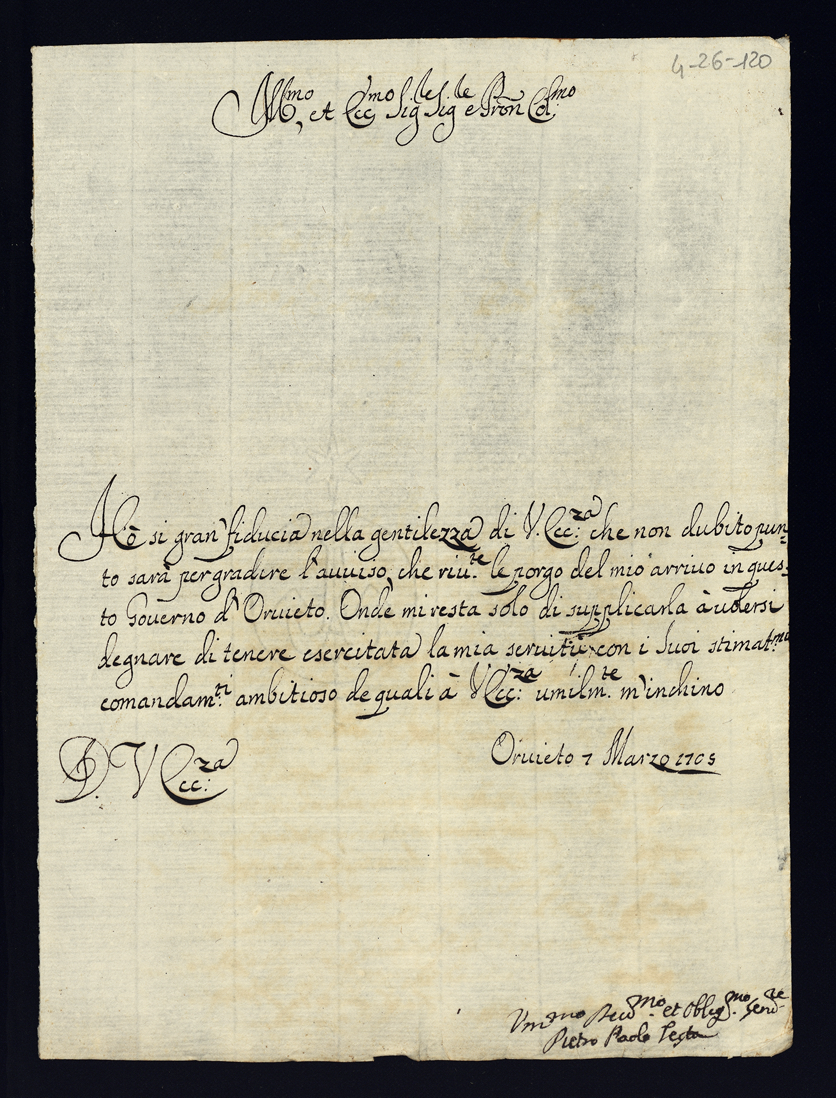 4-26-120
Ill.mo et Ecc.mo Sig.re Sig.re e Pron Col.mo
Hò si gran fiducia nella gentilezza di V. Ecc:za che non dubito pun=
to sarà per gradire l'auuiso, che riu.te le porgo del mio arriuo in ques=
to Gouerno d'Oruieto. Onde mi resta solo di supplicarla à uolersi
degnare di tenere esercitata la mia seruitù con i suoi stimat.mi
comandam.ti ambitioso de quali à V Ecc:za umilm.te m'inchino
D. V Ecc:za
Oruieto 7 Marzo 1705
Um.mo Deu.mo et Oblig.mo Seru.re
Pietro Paolo Testa